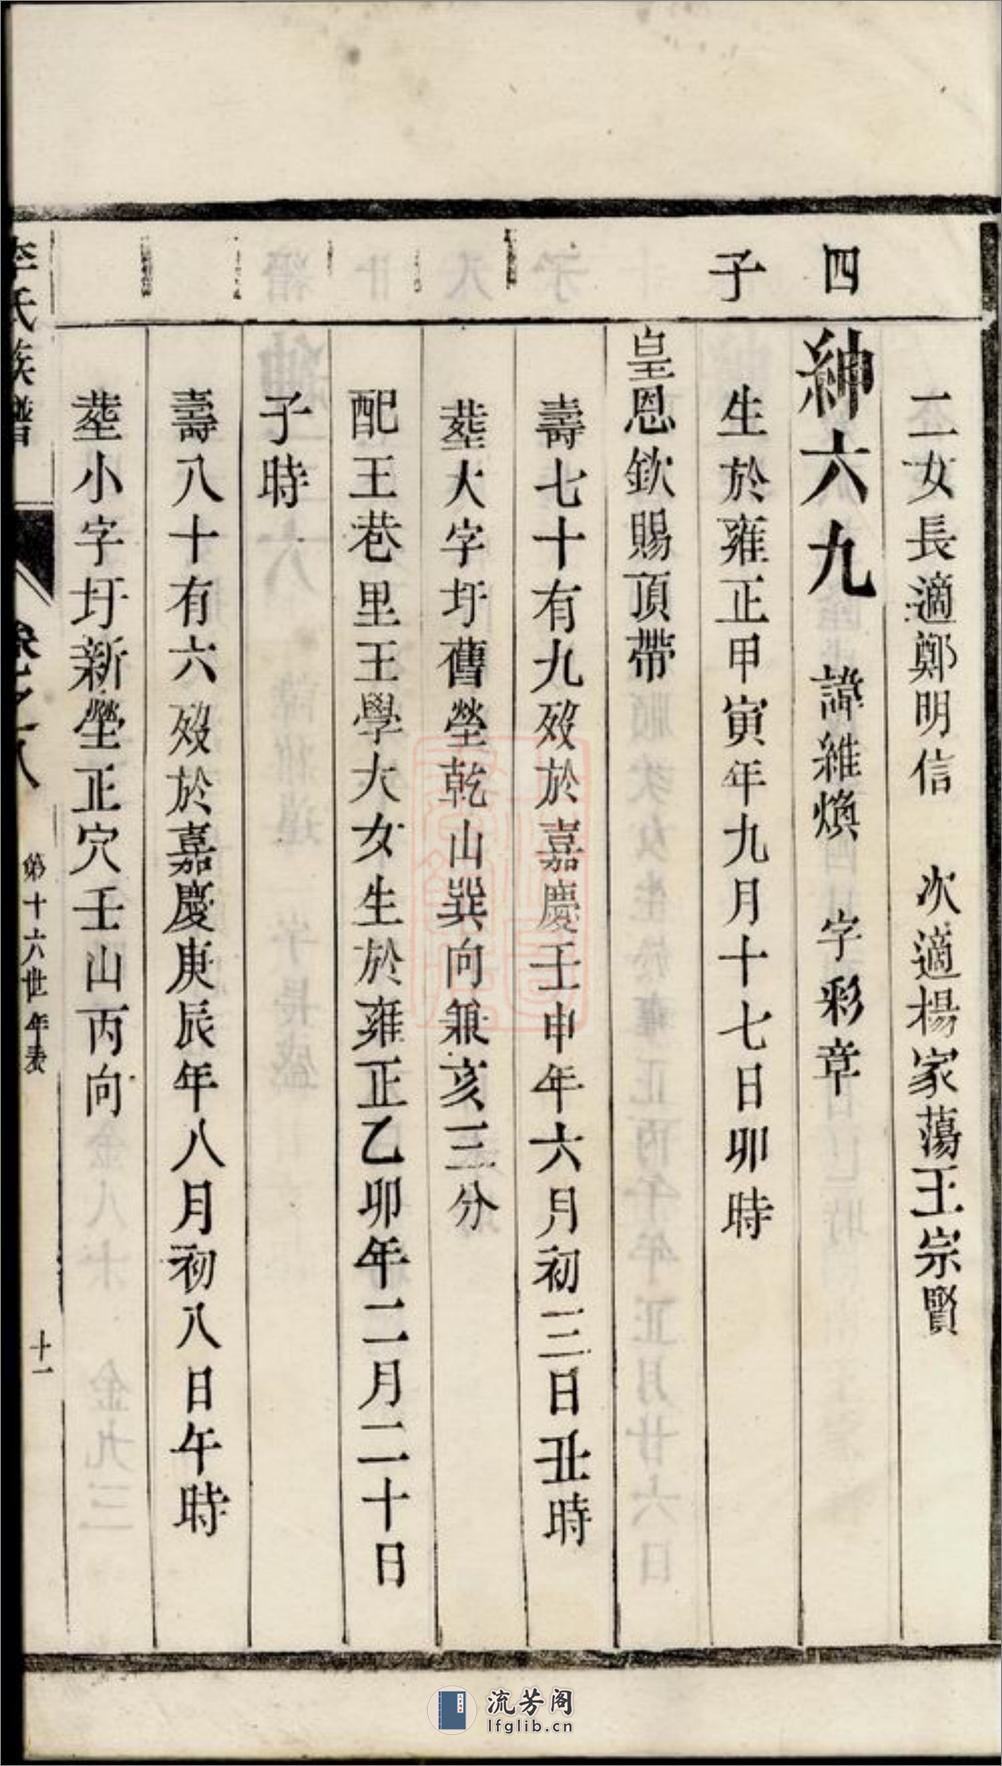 二女長適鄭明信　次適楊家蕩王宗賢
四
紳六九　諱維煥　字彩章
子
生於雍正甲寅年九月十七日卯時
皇恩欽賜頂帶
壽七十有九歿於嘉慶壬申年六月初三日丑時
塟大字圩舊塋乾山巽向兼亥三分
配王巷里王學大女生於雍正乙卯年二月二十日
子時
壽八十有六歿於嘉慶庚辰年八月初八日午時
塟小字圩新塋正穴壬山丙向
李氏族譜
卷之十八
第十六世年表
十一
流芳阁
lfglib.cn